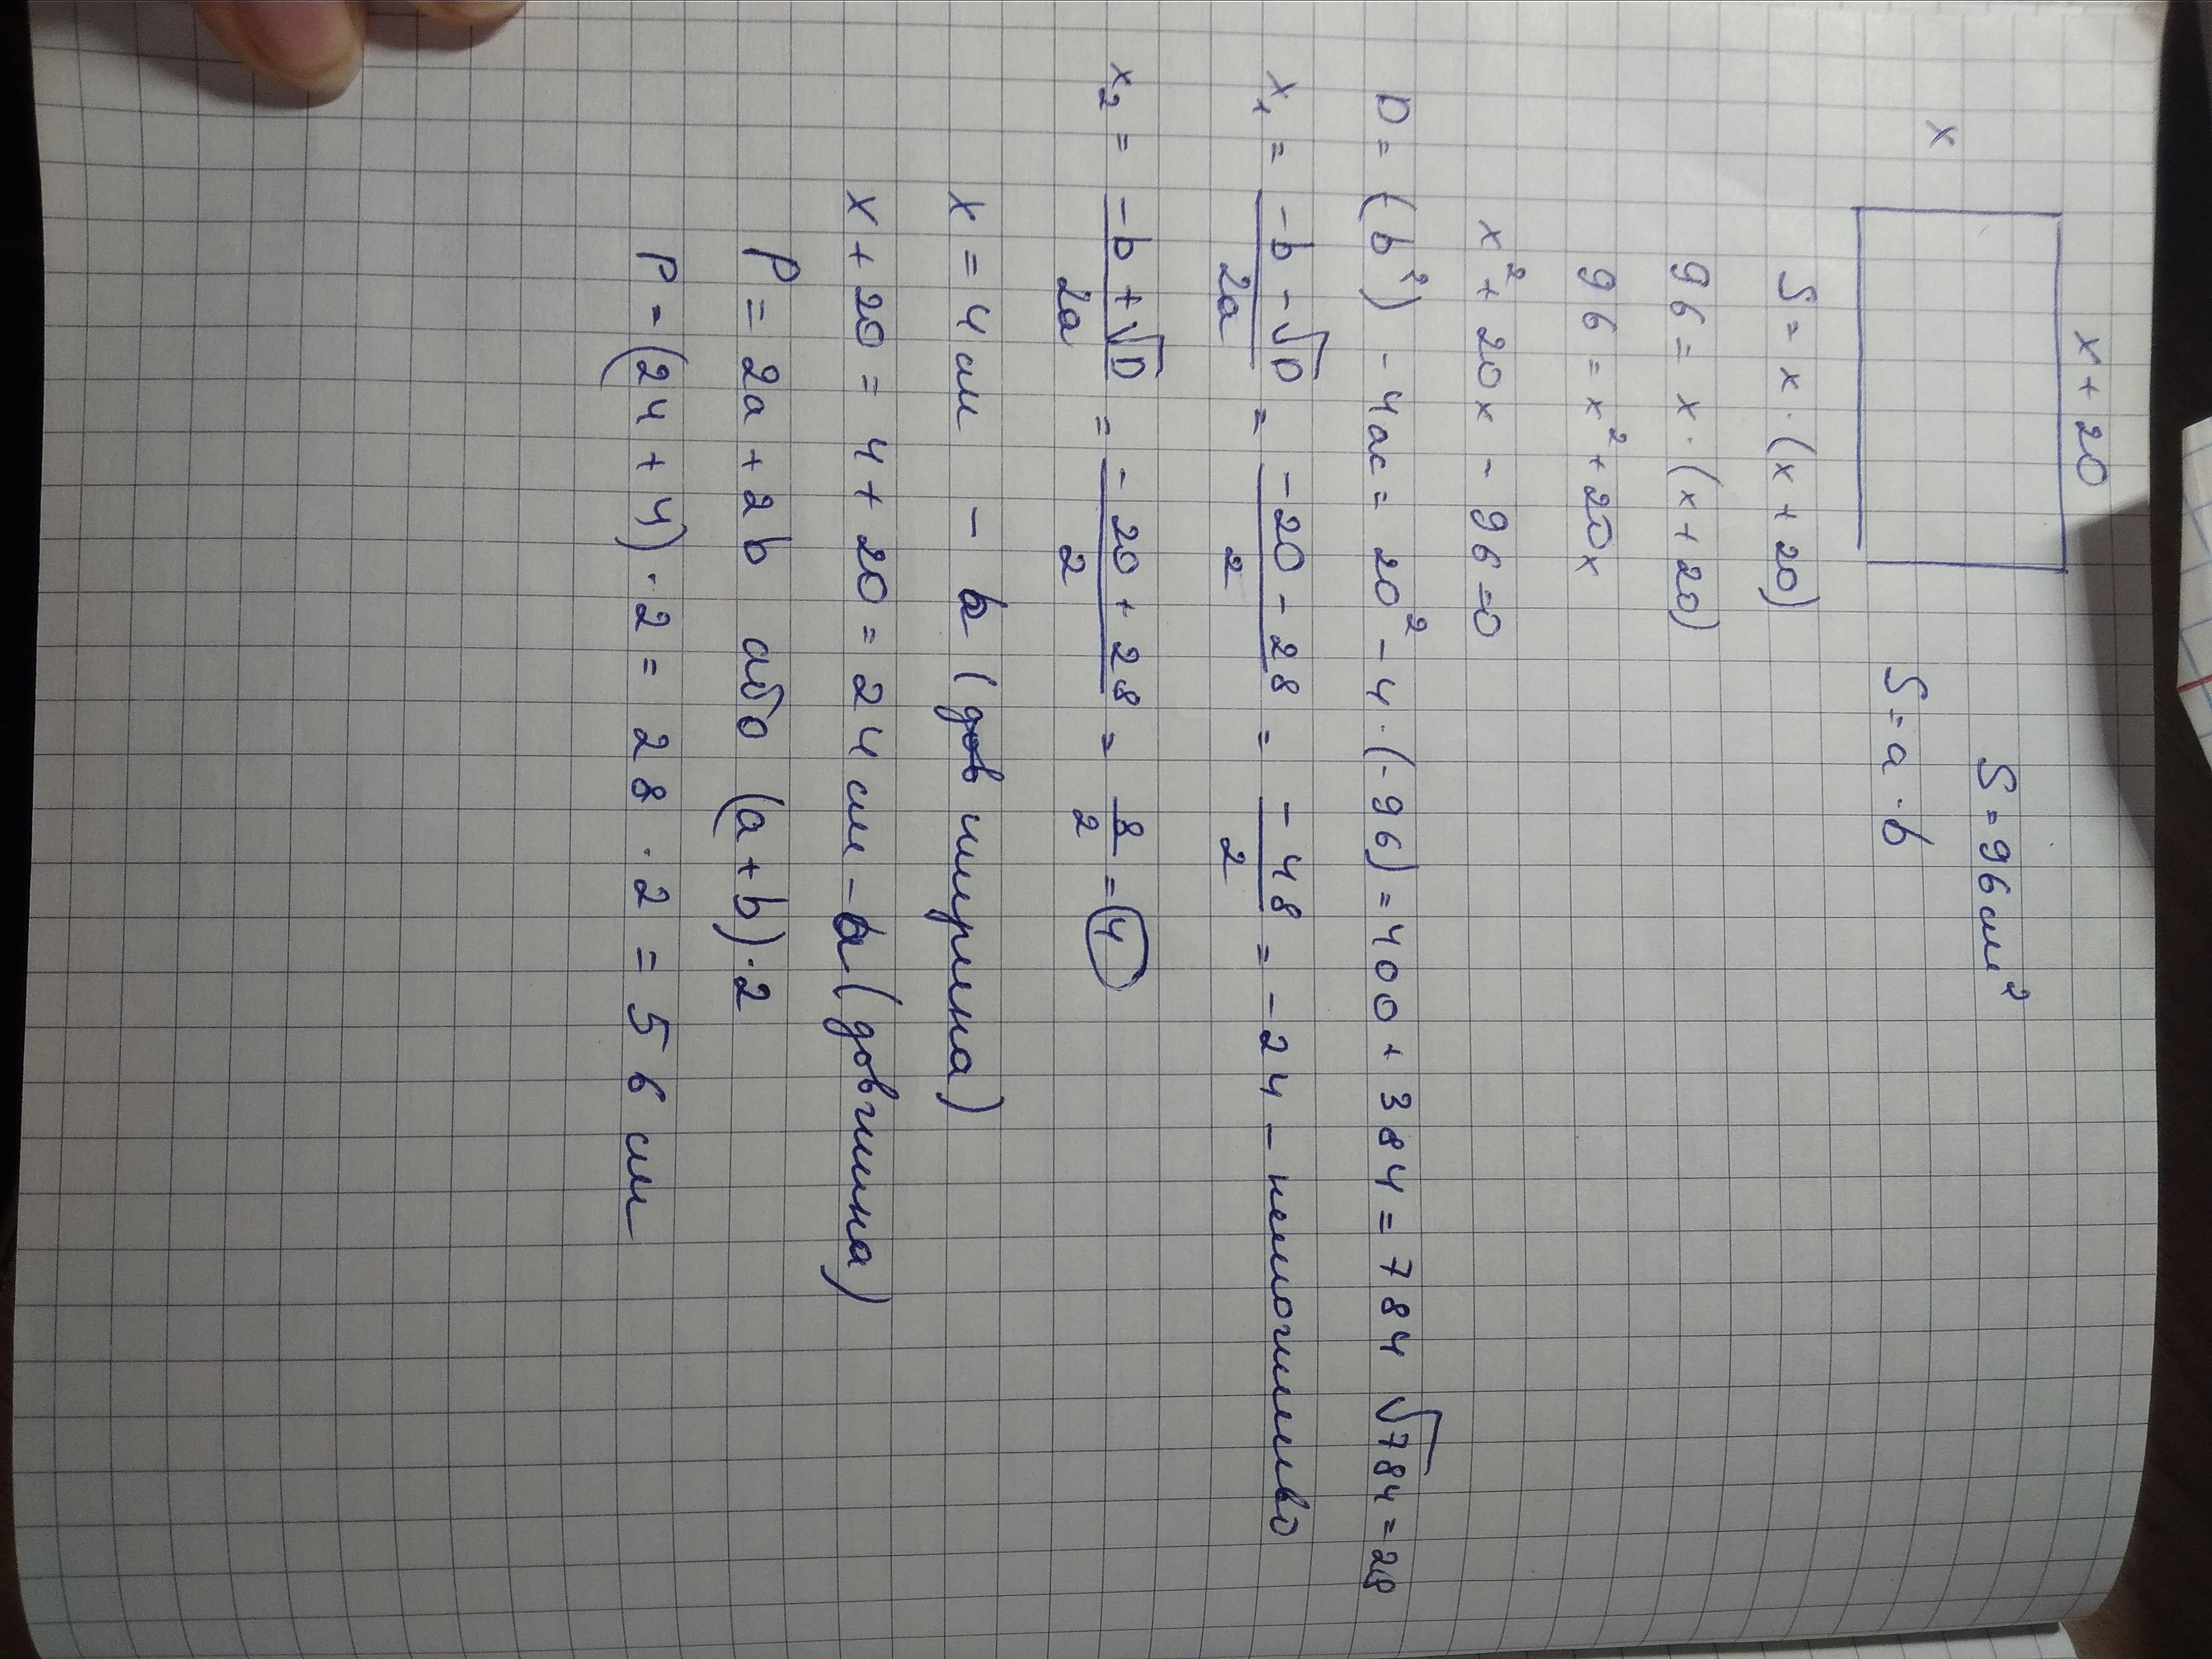 x + 20
x
S = 96 см²
S = a · b
S = x · (x + 20)
96 = x · (x + 20)
96 = x² + 20x
x² + 20x - 96 = 0
D = (b²) - 4ac = 20² - 4 · (-96) = 400 + 384 = 784 √784 = 28
x₁ = (-b - √D)/2a = (-20 - 28)/2 = -48/2 = -24 - неможливо
x₂ = (-b + √D)/2a = (-20 + 28)/2 = 8/2 = 4
x = 4 см - b (ширина)
x + 20 = 4 + 20 = 24 см - a (довжина)
P = 2a + 2b або (a + b) · 2
P = (24 + 4) · 2 = 28 · 2 = 56 см